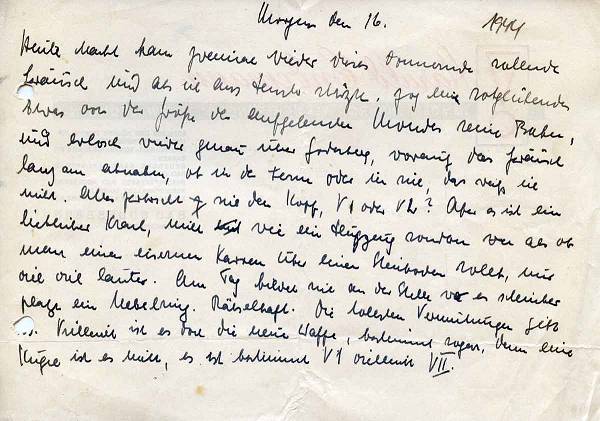 Morgen den 16. 1944
Heute Nacht kam zweimal wieder dieses donnernde rollende
Geräusch und als ich ans Fenster stürzte, zog ein rotglühendes
Etwas von der Größe des aufgehenden Mondes seine Bahn,
und erlosch wieder genau über Godesberg, worauf das Geräusch
langsam abnahm, ob in der Ferne oder in nie, das weiß ich
nicht. Alles zerbricht sich den Kopf, V1 oder V2? Aber es ist ein
Krach, nicht wie ein Flugzeug sondern wie als ob
man einen eisernen Karren über einen Steinboden rollt, nur
viel viel lauter. Am Tag bildet sich an der Stelle wo es scheinbar
platzt ein Nebelring. Rätselhaft. Die tollsten Vermutungen gibt
es. Vielleicht ist es doch die neue Waffe, bestimmt sogar, denn eine
ist es nicht, es ist bestimmt V1 vielleicht VII.